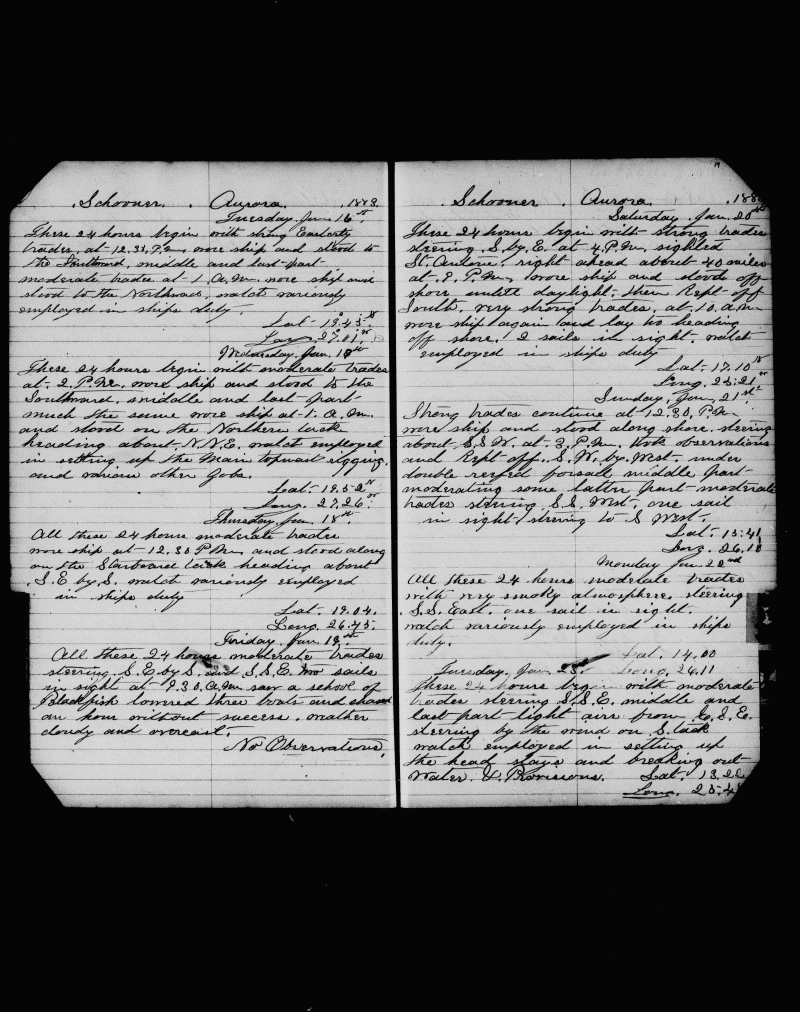 Schooner Aurora. 1883.
Tuesday. Jan 16th.
These 24 hours begin with strong Easterly
trades, at 12.30, P.M. wore ship and stood to
the Southward, middle and last part
moderate trades at 1. A.M. wore ship and
stood to the Northward, watch variously
employed in ships duty.
Lat- 19.45 N
Lon 27.01 W
Wednesday. Jan. 17th
These 24 hours begin with moderate trades
at 2. P.M. wore ship and stood to the
Southward. middle and last part
much the same wore ship at 1. A.M.
and stood on the Northern tack
heading about N.N.E. watch employed
in setting up the Main topmast rigging.
and various other Jobs.
Lat- 19.52 N
Long. 27.26. W
Thursday. Jan 18th
All these 24 hours moderate trades
wore ship at 12.30 P.M. and stood along
on the Starboard tack heading about
S.E. by S. watch variously employed
in ships duty
Lat. 19.04.
Long. 26.45.
Friday. Jan. 19th
All these 24 hours moderate trades
steering. S.E. by S. and S.S.E. two sails
in sight at 9.30. A.M. saw a school of
Blackfish lowered three boats and chased
an hour without success. weather
cloudy and overcast.
No Observations.
19
Schooner Aurora. 188
Saturday. Jan. 20th
These 24 hours begin with strong trades
steering. S. by. E. at 4. P.M. sighted
St. Antone. right ahead about 40 miles
at P.M. wore ship and stood off
shore untill daylight. then Kept off
South. very strong trades. at. 10. a.m
wore ship again and lay to heading
off shore. 2 sails in sight. watch
employed in ships duty
Lat. 17.10 N
Long. 25.21
Sunday, Jan 21st
Strong trades continue at 12.30, P.M
wore ship and stood along shore. steering
about. S.S.W. at. 3. P.M. took observations
and Kept off. S.W. by. West. under
double reefed foresail middle part
moderating some latter part moderate
trades steering S.S. West, one sail
in sight steering to S West.
Lat. 15.41
Long. 26.10
Monday Jan 22nd
All these 24 hours moderate trades
with very smoky atmosphere. steering
S.S. East. one sail in sight.
watch variously employed in ships
duty.
Lat. 14.00
Tuesday, Jan 23. Long. 26.11
These 24 hours begin with moderate
trades steering S.S.E. middle and
last part light airs from E.S.E.
steering by the wind on S. tack
watch employed in setting up
the head stays and breaking out
Water. & Provisions. Lat. 13.22
Long. 25.4